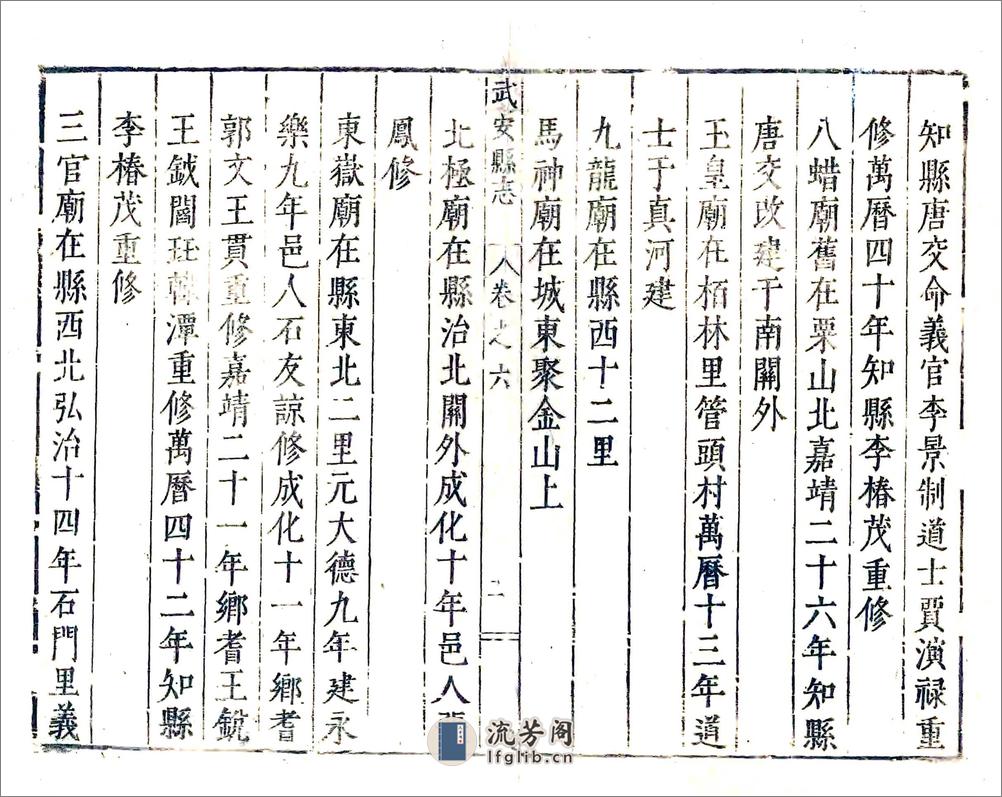 知縣唐交命義官李景制道士賈演禄重
修萬曆四十年知縣李椿茂重修
八蜡廟舊在粟山北嘉靖二十六年知縣
唐交改建于南關外
玉皇廟在栢林里管頭村萬曆十三年道
士于真河建
九龍廟在縣西十二里
馬神廟在城東聚金山上
武安縣志 卷之六 二
北極廟在縣治北關外成化十年邑人
鳳修
東嶽廟在縣東北二里元大德九年建永
樂九年邑人石友諒修成化十一年鄉耆
郭文王貫重修嘉靖二十一年鄉耆王銳
王鉞閻珏韓潭重修萬曆四十二年知縣
李椿茂重修
三官廟在縣西北弘治十四年石門里義
流芳阁
lfglib.cn